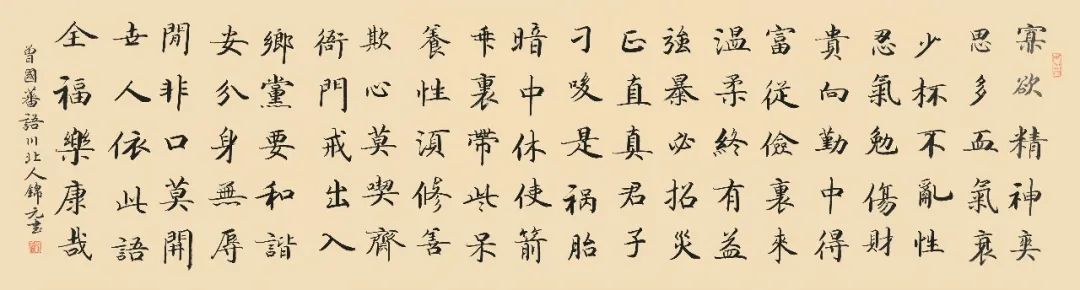 寡欲精神爽
思多血氣衰
少杯不亂性
忍氣勉傷財
貴向勤中得
富從儉裏來
溫柔終有益
強暴必招災
正直真君子
刁唆是祸胎
暗中休使箭
乖裏帶些呆
養性須修善
欺心莫喫齊
衙門戒出入
鄉黨要和諧
安分身無辱
閒非口莫開
世人依此語
全福樂康哉
曾國蕃語川北人錦元書